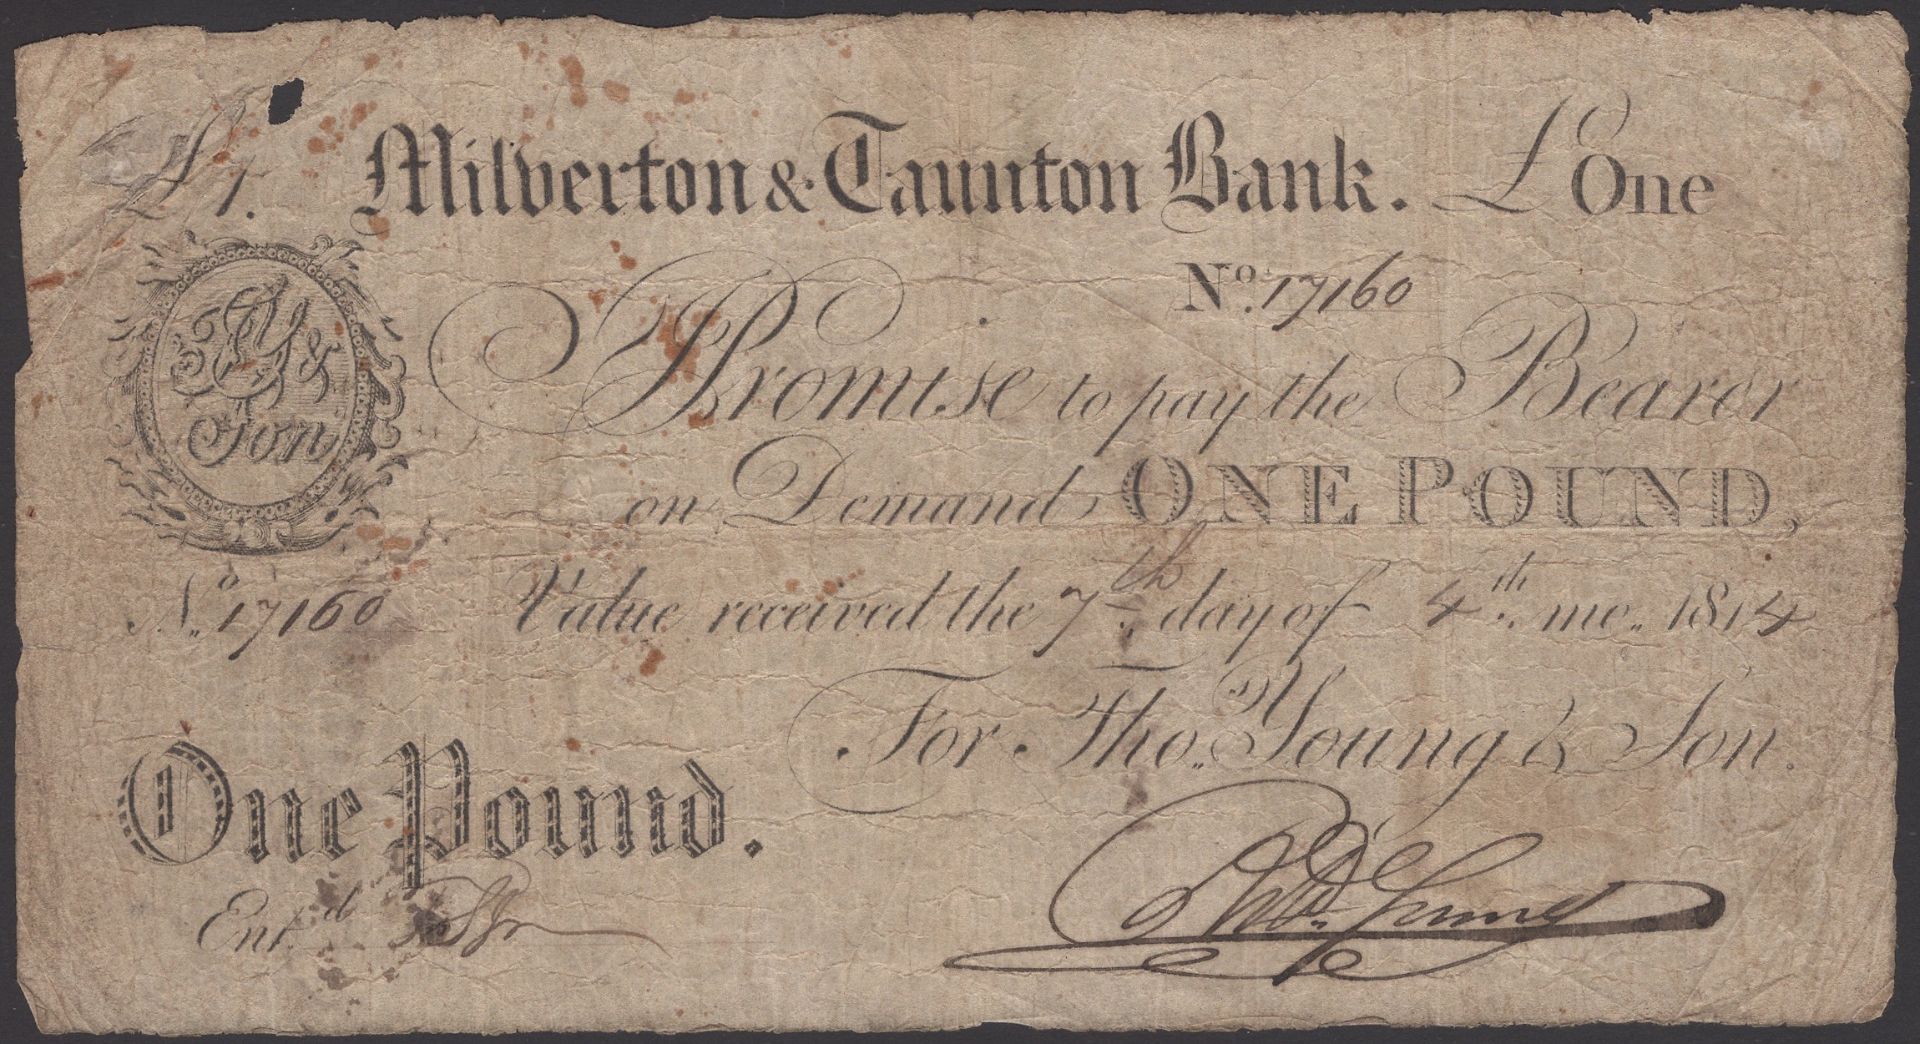 £1. Milverton & Taunton Bank. £One
No. 17160
TY &
Son
I Promise to pay the Bearer
on Demand ONE POUND,
No. 17160 Value received the 7th day of 4th mo. 1814
For Tho. Young & Son.
One Pound.
Entd